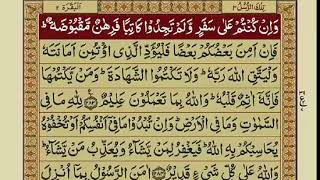 تِلْكَ الرُّسُلُ ٣
اَلْبَقَرَة ٢
وَاِنْ كُنْتُمْ عَلٰى سَفَرٍ وَّلَمْ تَجِدُوْا كَاتِبًا فَرِهٰنٌ مَّقْبُوْضَةٌ ؕ
فَاِنْ اَمِنَ بَعْضُكُمْ بَعْضًا فَلْيُؤَدِّ الَّذِى اؤْتُمِنَ اَمَانَتَهٗ
وَلْيَتَّقِ اللّٰهَ رَبَّهٗ ؕ وَلَا تَكْتُمُوا الشَّهَادَةَ ؕ وَمَنْ يَّكْتُمْهَا
فَاِنَّهٗۤ اٰثِمٌ قَلْبُهٗ ؕ وَاللّٰهُ بِمَا تَعْمَلُوْنَ عَلِيْمٌ ﴿۲۸۳﴾ لِلّٰهِ مَا فِى
السَّمٰوٰتِ وَمَا فِى الْاَرْضِ ؕ وَاِنْ تُبْدُوْا مَا فِىْۤ اَنْفُسِكُمْ اَوْ تُخْفُوْهُ
يُحَاسِبْكُمْ بِهِ اللّٰهُ ؕ فَيَغْفِرُ لِمَنْ يَّشَآءُ وَيُعَذِّبُ مَنْ يَّشَآءُ ؕ
وَاللّٰهُ عَلٰى كُلِّ شَىْءٍ قَدِيْرٌ ﴿۲۸۴﴾ اٰمَنَ الرَّسُوْلُ بِمَاۤ اُنْزِلَ